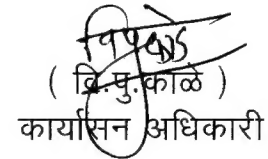 ( वि.पु.काळे )
कार्यासन अधिकारी